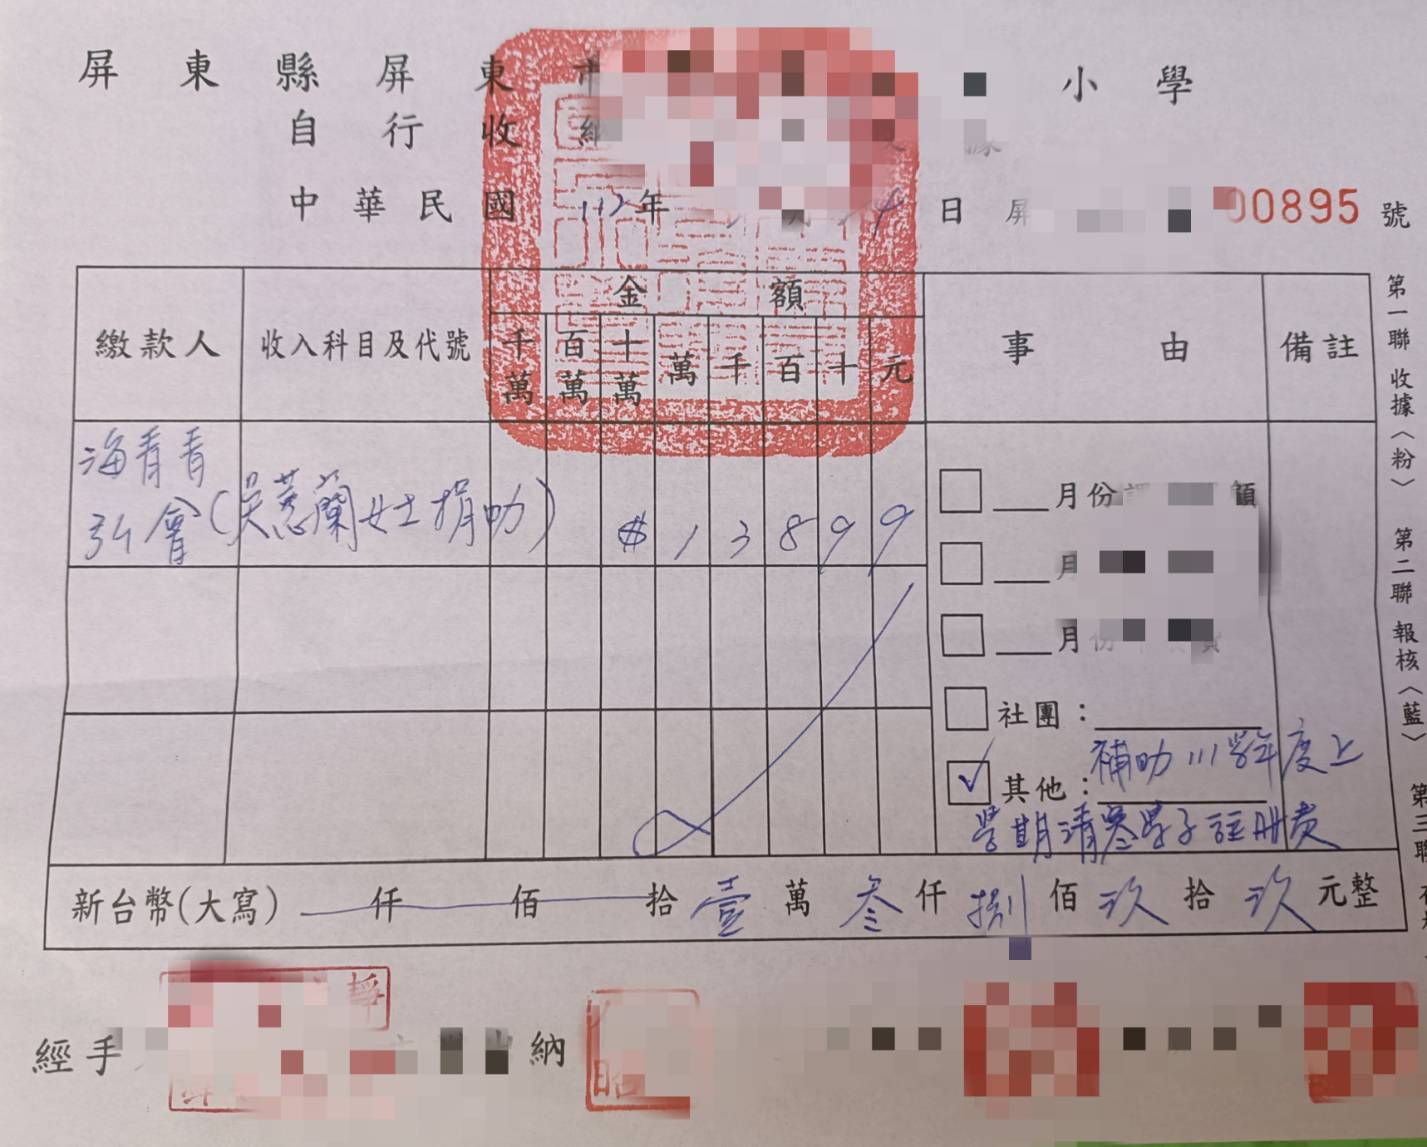 屏東縣屏東市 小學
自行收納
中華民國 112年 日 屏 00895 號
繳款人 收入科目及代號 金額 事由 備註
千萬 百萬 十萬 萬 千 百 十 元
海青青
弘會(吳蕙蘭女士捐助) $ 1 3 8 9 9
□ ___月份 額
□ ___月
□ ___月份
□ 社團：
☑ 其他：補助111學年度上
學期清寒學子註冊費
新台幣(大寫) 仟 佰 拾 壹 萬 叁 仟 捌 佰 玖 拾 玖 元整
經手 納
第一聯 收據〈粉〉 第二聯 報核〈藍〉 第三聯